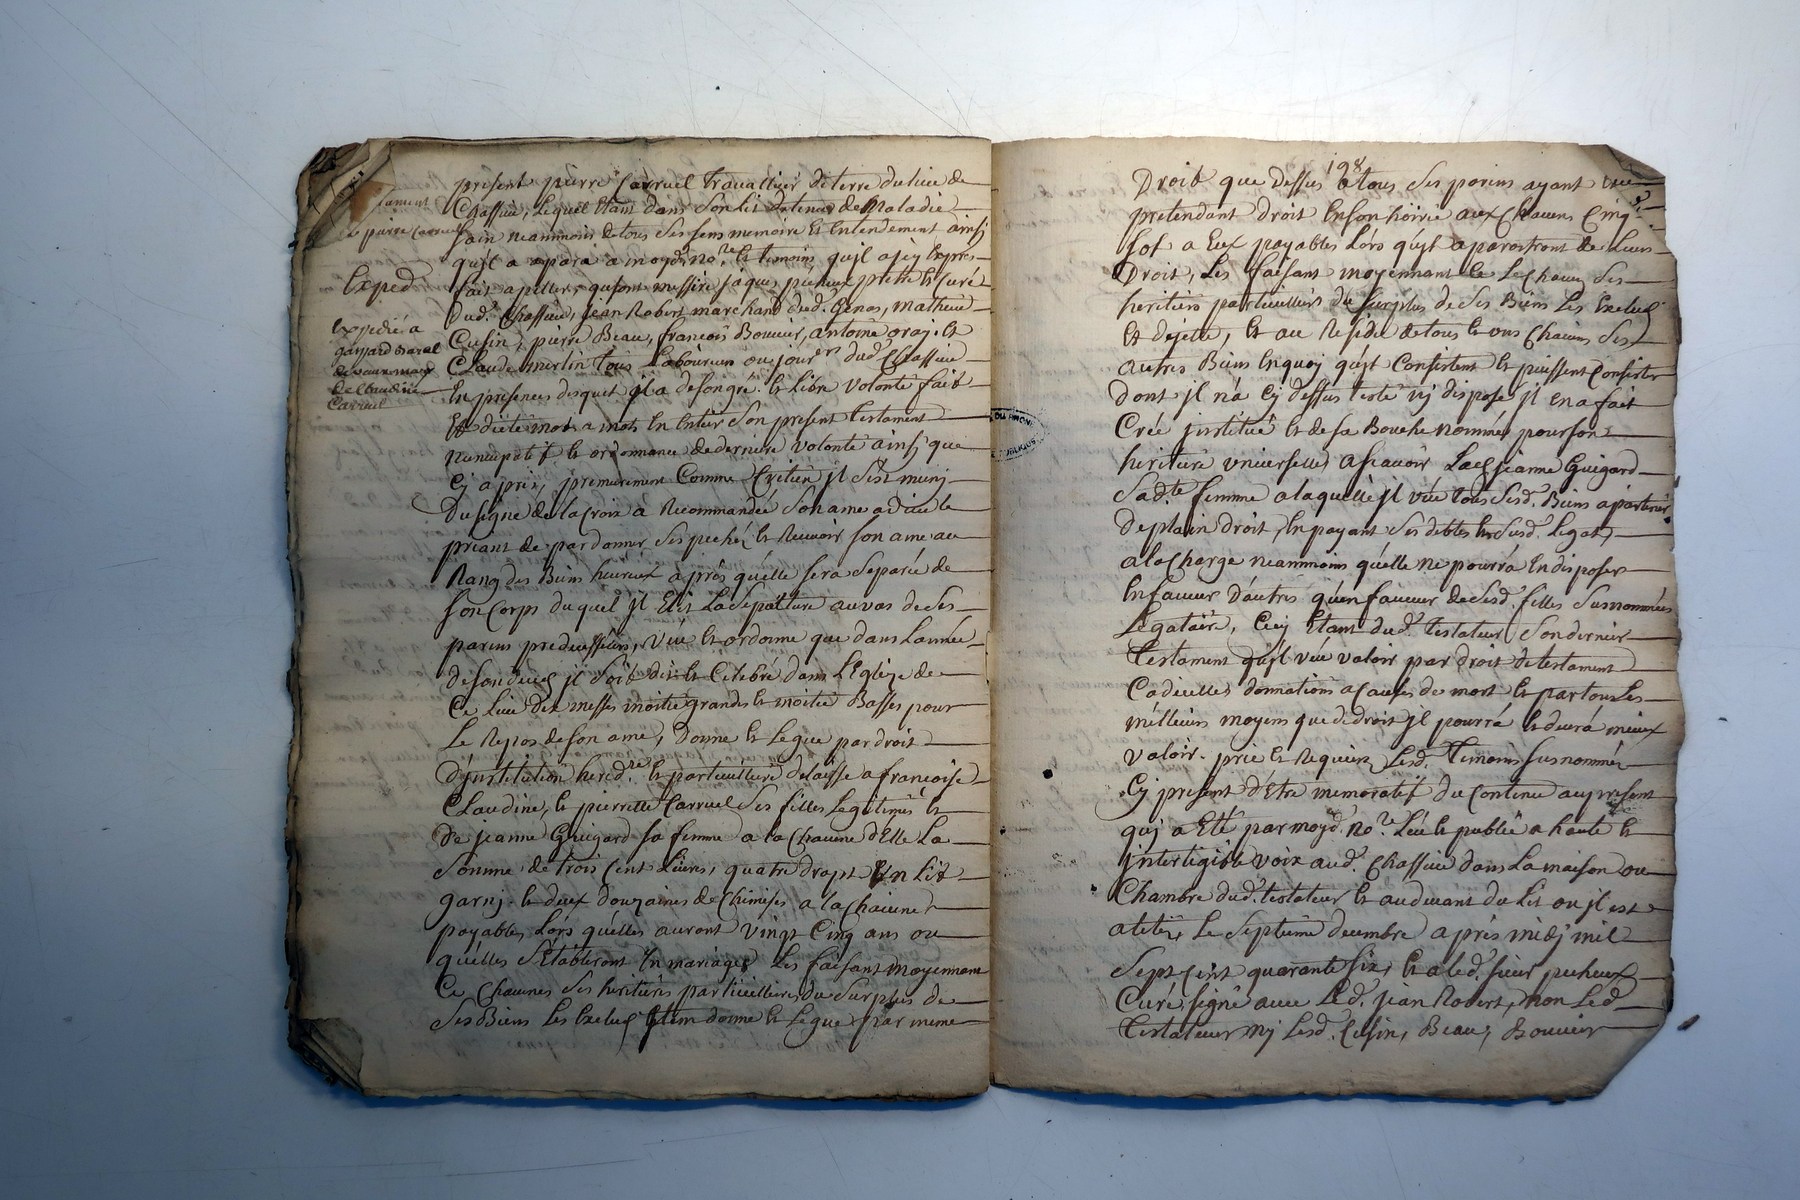 tament
de pierre Carruel
Exped
expedié a
gaspard maral
de vauxonay
de Claudine
Carruel
present pierre Carruel travallieur de terre du lieu de
Chassieu, lequel étant dans son lit detenu de maladie
sain neanmoins de tous ses sens memoire et entendement ainsi
qu'jl a aparu a moyd. no.re et temoins qu'jl a icy expres-
fait apeller, qui sont messire jáques pecheux prêtre et curé
dud. Chassieu, jean Robert marchand dud. Genas, mathieu
Cusin, pierre Beau, francois Bouvier, antoine oraj. et
Claude merlin tous Laboureurs ou jour.rs dud. Chassieu
En presences desquels jl a de son gré et libre volonté fait
Et dicté mot a mots En Entier son present testament
nuncupatif et ordonnance de derniere volonté ainsi que
Cy aprés, premierement Comme Cretien jl s'est munj
Du signe de la croix à Recommandée son ame a dieu le
priant de pardonner ses pechéz et Recevoir son ame au
Rang des Biens heureux aprés qu'elle sera separée de
son corps duquel jl Elit La sepulture au vas de ses
parens predecesseurs, veut et ordonne que dans L'année
de son deces jl soit Celebré dans L'Eglize de
Ce lieu dix messes moitié grandes et moitié Basses pour
Le Repos de son ame, Donne et Legue par droit
D'jnstitution hered.re et particuliere delaisse a francoise
Claudine, et pierrette Carruel ses filles Legitimes et
de jeanne Guigard sa femme a la Chacune d'Elle La
somme de trois Cent Livres, quatre drapt Un Lit
garnj. et deux douzaines de Chemises a la Chacune
payables, Lórs qu'elles auront vingt Cinq ans ou
qu'elles s'Etabliront En mariages Les faisant moyennant
Ce Chacunes ses heritieres particulieres du surplus de
ses Biens Les Exclus Jtem donne et Legue par meme
198
Droit que dessus a tous ses parens ayant ou
pretendant droit En son hoirie aux Chacuns Cinq
sols a Eux payables Lórs qu'jls aparostront de leurs
Droit, Les faisant moyennant ce Le Chacun ses
heritiers particulliers du surplus de ses Biens Les Exclus
Et dejette, Et au Residu de tous et uns Chacuns ses
autres Biens En quoy qu'jls Consistent et puissent Consister
dont jl n'a Cy dessus testé ny disposé jl En a fait
Créé jnstitué et de sa Bouche nommée pour son
heritiere universelle a scavoir Lad jeanne Guigard
Sad.te femme a laquelle jl veut tous sesd. Biens apartenir
de plain droit, En payant ses debtes et Susd. Legats
a la charge neanmoins qu'elle ne pourrá En disposer
En faveur D'autres qu'en faveur de Sesd. filles Susnommées
Legataire, Cecy Etant dud. testateur son dernier
testament qu'jl veut valoir par droit de testament
Codicilles donnations a Causes de mort et par tous Les
méilleurs moyens que de droit jl pourrá et devrá mieux
valoir. prie et Requiert Lesd. temoins susnommés
Cy present d'Etre memoratif du Contenu au present
quj a Eté par moyd. No.re Leu et publié a haute et
jnteligible voix aud. Chassieu dans La maison ou
Chambre dud. testateur et audevant du Lit ou jl est
alité, Le septieme decembre aprés midj mil
Sept Cent quarante six, Et a led. sieur pecheux
Curé signé avec Led. jean Robert, non Led
testateur nj Lesd. Cusin, Beau, Bouvier